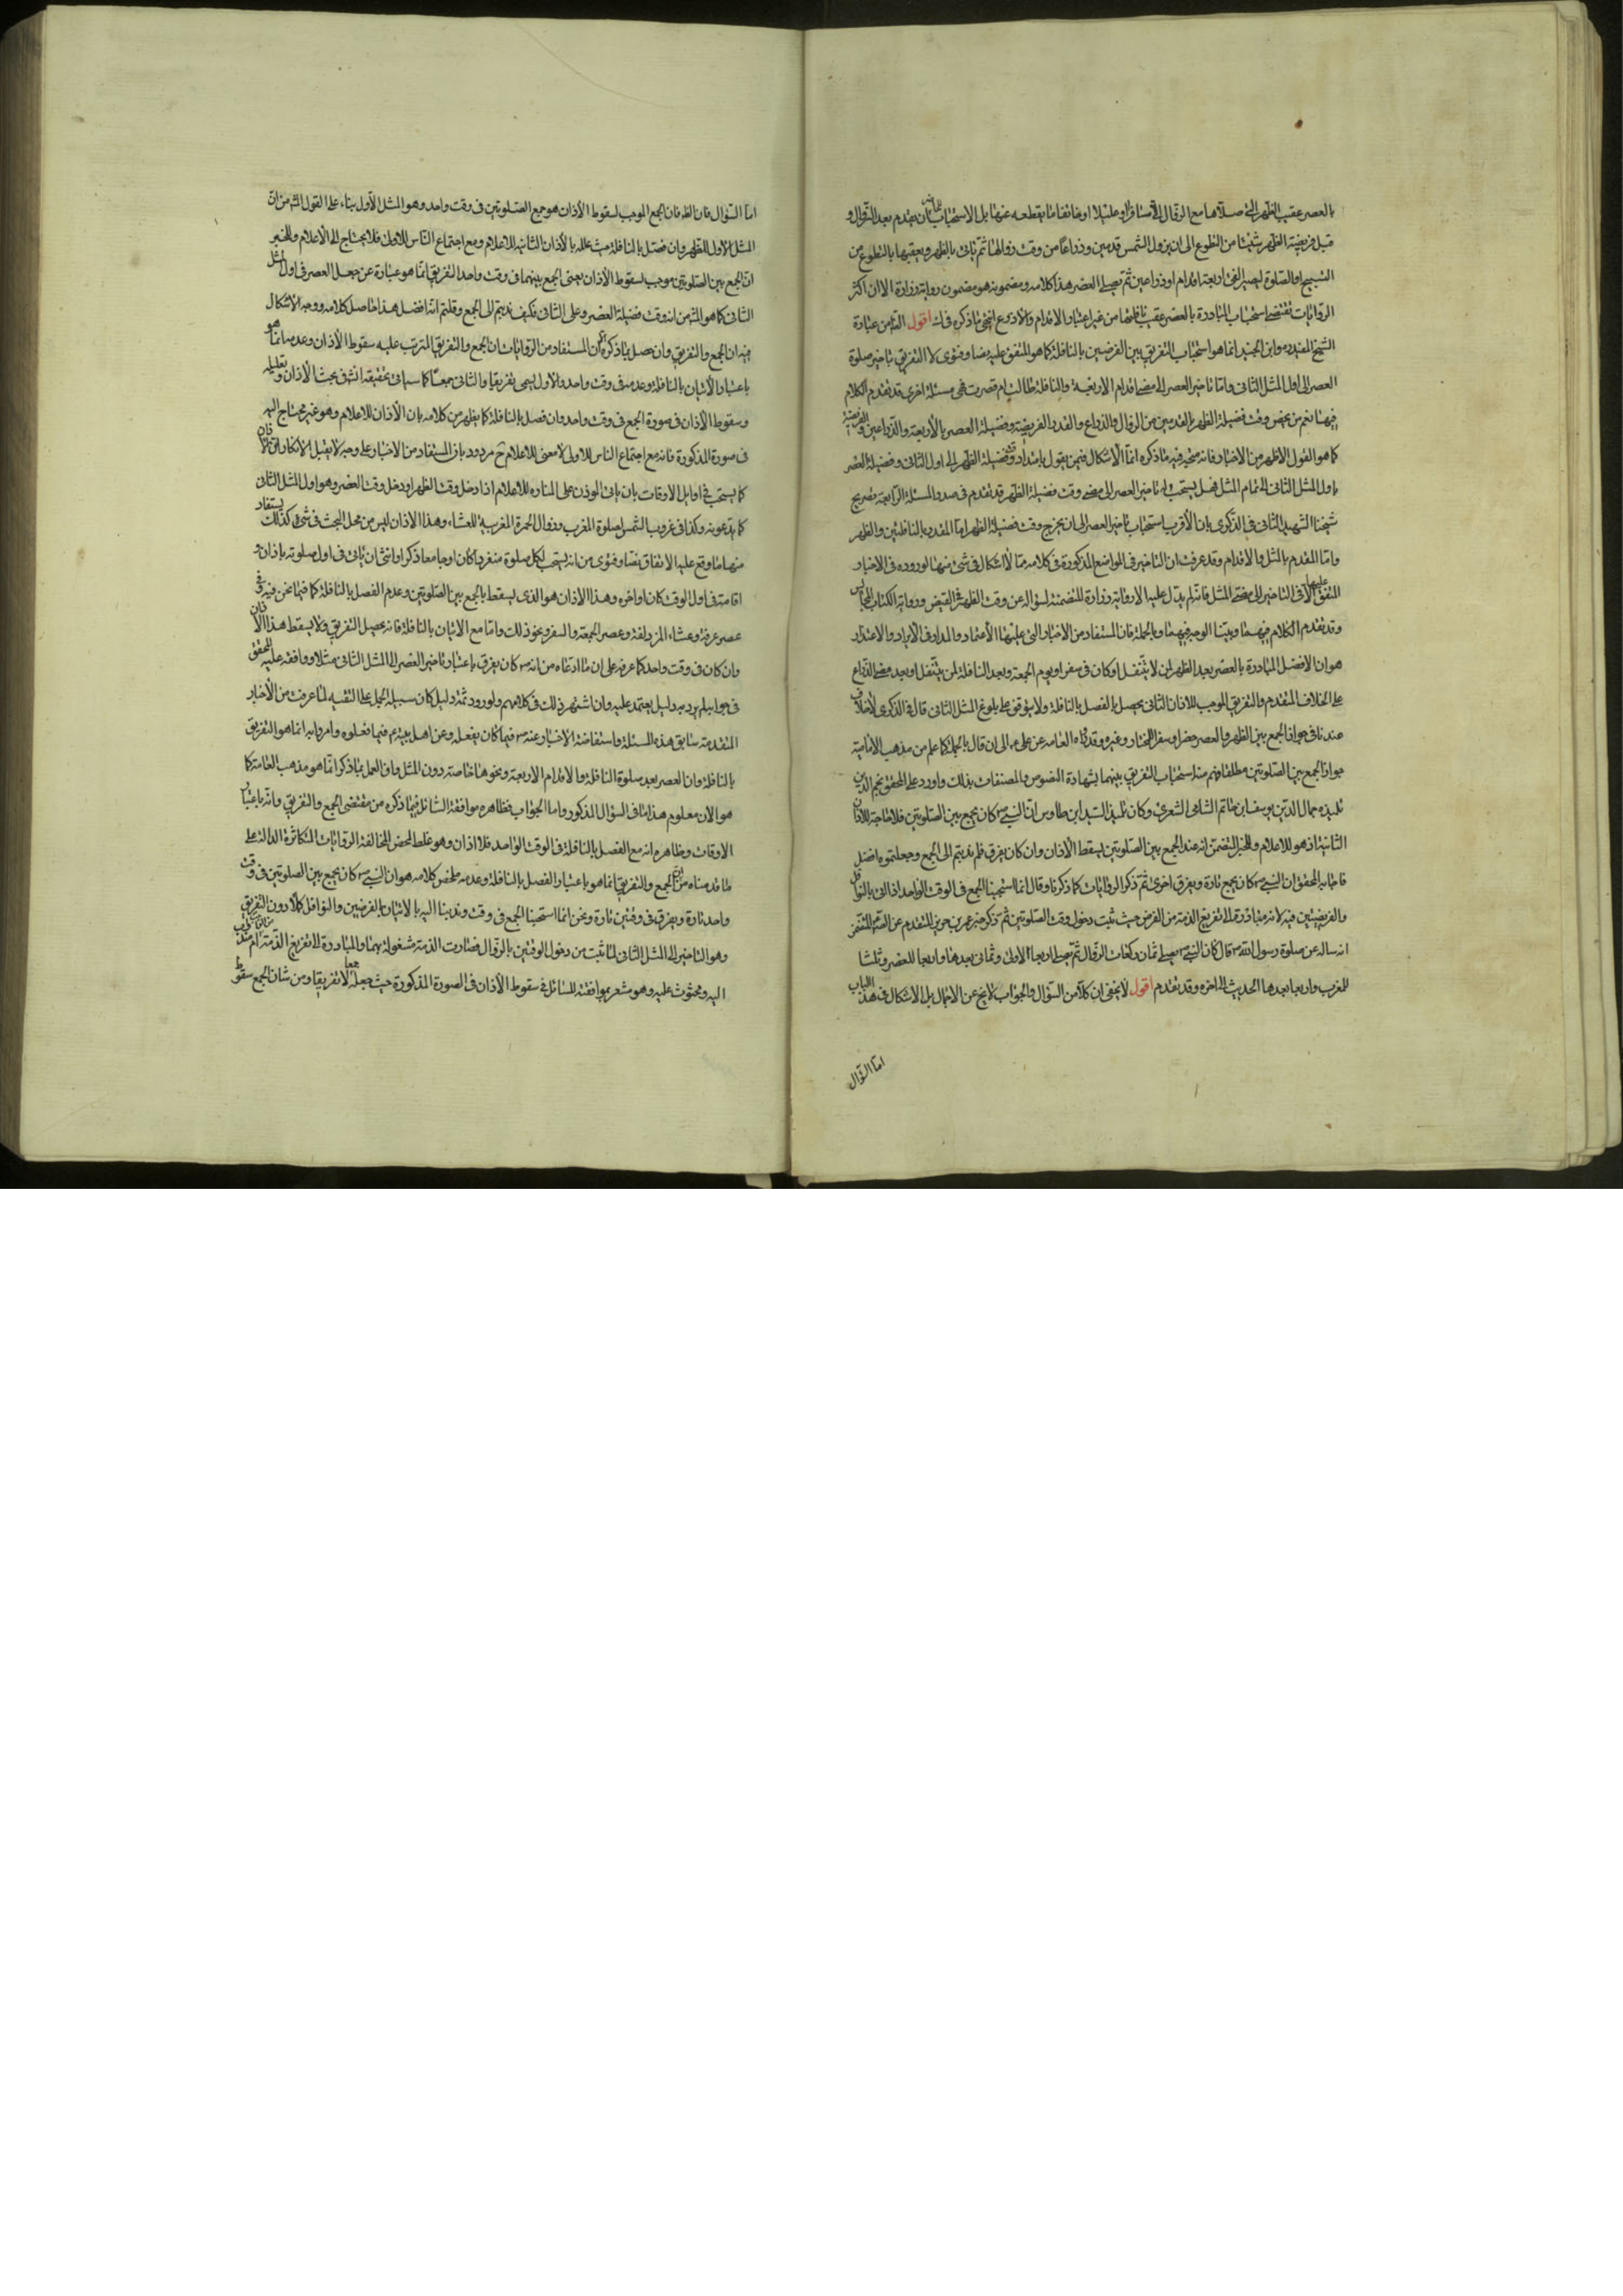 بالعصر عقيب الظهر التى صلاها مع الزوال الا مسافرا او عليلا او خائفا ما يقطعه عنها بل الاستحباب للحاضر ان يقدم بعد الزوال و
قبل فريضة الظهر شيئا من التطوع الى ان يزول الشمس قدمين وذراعا من وقت زوالها ثم ياتى بالظهر ويعقبها بالتطوع من
التسبيح او الصلوة ليصير الفئ اربعة اقدام او ذراعين ثم يصلى العصر هذا كلامه ومضمونه هو مضمون رواية زرارة الا ان اكثر
الروايات تقتضى استحباب المبادرة بالعصر عقيب نافلتها من غير اعتبار الاقدام والاذرع انتهى ما ذكره فى ك اقول الظ من عبارة
الشيخ المفيد ره وابن الجنيد انما هو استحباب التفريق بين الفرضين بالنافلة كما هو المتفق عليه نصا وفتوى لا التفريق بتاخير صلوة
العصر الى اول المثل الثانى واما تاخير العصر الى مضى اقدام الاربعة والنافلة طالت ام قصرت فهى مسئلة اخرى قد تقدم الكلام
فيها نعم من يخص وقت فضيلة الظهر بالقدمين من الزوال والذراع والقدر الفريضة وفضيلة العصر بالأربعة والذراعين والفريضة
كما هو القول الاظهر من الاخبار فانه متجه فيه ما ذكره انما الاشكال فيمن يقول بامتداد وقت فضيلة الظهر الى اول الثانى وفضيلة العصر
باول المثل الثانى الى تمام المثل فهل يستحب له تاخير العصر الى مضى وقت فضيلة الظهر قد تقدم فى صدر المسئلة الرابعة تصريح
شيخنا الشهيد الثانى فى الذكرى بان الأقرب استحباب تاخير العصر الى ان يخرج وقت فضيلة الظهر اما المقدر بالنافلتين والظهر
واما المقدم بالمثل والاقدام وقد عرفت ان التاخير فى المواضع المذكورة فى كلامه مما لا اشكال فى شئ منها لوروده فى الاخبار
المتفق عليها الا فى التاخير الى مضى المثل فانه لم يدل عليه الا رواية زرارة المتضمنة لسؤاله عن وقت الظهر فى القيض ورواية الكتاب المجالس
وقد تقدم الكلام فيهما وبينا الوجه فيهما وبالجملة فان المستفاد من الاخبار التى عليها الأعتماد والمدار فى الأيراد والاعتذار
هو ان الافضل المبادرة بالعصر بعد الظهر لمن لا يتنفل او كان فى سفر او يوم الجمعة وبعد النافلة لمن يتنفل او بعد مضى الذراع
على الخلاف المتقدم والتفريق الموجب للاذان الثانى يحصل بالفصل بالنافلة ولا يتوقف على بلوغ المثل الثانى قال فى الذكرى لاخلاف
عندنا فى جواز الجمع بين الظهر والعصر حضرا وسفرا للمختار وغيره وقد رواه العامه عن على ع الى ان قال بالجملة كما علم من مذهب الامامية
جواز الجمع بين الصلوتين مطلقا فهم منه استحباب التفريق بينهما بشهادة النصوص والمصنفات بذلك واورد على المحقق نجم الدين
تلميذه جمال الدين يوسف ابن حاتم الشامى المشغرى وكان تلميذ السيد ابن طاوس ان النبى ص كان يجمع بين الصلوتين فلا حاجة للاذان
الثانية اذ هو للاعلام وللخبر المتضمن انه عند الجمع بين الصلوتين يسقط الأذان وان كان يفرق فلم ندبتم الى الجمع وجعلتموه افضل
فاجابه المحقق ان النبى ص كان يجمع تارة ويفرق اخرى ثم ذكر الروايات كما ذكرنا وقال انما استحبنا الجمع فى الوقت الواحد اذا اتى بالنوافل
والفريضتين فيه لانه مبادرة الى تفريغ الذمة من الفرض حيث ثبت دخول وقت الصلوتين ثم ذكر خبر عمر بن حريز المتقدم عن الصم المتضمن
انه ساله عن صلوة رسول الله ص قال كان النبى ص يصلى ثمان ركعات الزوال ثم يصلى اربعا الاولى وثمانى بعدها واربعا للعصر وثلثا
للمغرب واربعا بعدها الحديث الى اخره وقد تقدم اقول لا يخفى ان كلا من السؤال والجواب لا يخ عن الاجمال بل الاشكال فى هذا الباب
اما السؤال
اما السؤال فان الظ فان الجمع الموجب لسقوط الأذان هو جمع الصلوتين فى وقت واحد وهو المثل الأول بناء على القول المشهور من ان
المثل الاول للظهر وان فصل بالنافلة حيث علله بالأذان الثانية للاعلام ومع اجتماع الناس للاولى فلا يحتاج الى الاعلام وللخبر
ان الجمع بين الصلوتين موجب لسقوط الأذان يعنى الجمع بينهما فى وقت واحد التفريق انما هو عبارة عن جعل العصر فى اول المثل
الثانى كما هو المشهور من انه وقت فضيلة العصر وعلى الثانى فكيف ندبتم الى الجمع وقلتم انه افضل هذا حاصل كلامه ووجه الاشكال
فيه ان الجمع والتفريق وان حصل بما ذكره الا ان المستفاد من الروايات ان الجمع والتفريق المترتب عليه سقوط الأذان وعدمه انما هو
باعتبار الأتيان بالنافلة وعدمه فى وقت واحد والاول يسمى تفريقا والثانى جمعا كما سياتى تحقيقه انش فى بحث الأذان وتعليله
وسقوط الأذان فى صورة الجمع فى وقت واحد وان فصل بالنافلة كما يظهر من كلامه بان الأذان للاعلام وهو غير محتاج اليه
فى صورة المذكورة فانه مع اجتماع الناس للاولى لا معنى للاعلام ح مردود بان المستفاد من الاخبار على وجه لا يقبل الانكار ان الاذان
كما يستحب فى اوايل الاوقات بان ياتى الموذن على المناره للاعلام اذا دخل وقت الظهر او دخل وقت العصر وهو اول المثل الثانى
كما يدعونه وكذا فى غروب الشمس لصلوة المغرب وزوال الحمرة المغربية للعشاء وهذا الاذان ليس من محل البحث فى شئ كذلك يستفاد
منها ما وقع عليه الاتفاق نصا وفتوى من انه يستحب لكل صلوة منفردا كان او جامعا ذكرا او انثى ان ياتى فى اول صلوته باذان و
اقامة فى اول الوقت كان او اخره وهذا الاذان هو الذى يسقط بالجمع بين الصلوتين وعدم الفصل بالنافلة كما فيما نحن فيه فى
عصر عرفة وعشاء المزدلفة وعصر الجمعة والسفر ونحو ذلك واما مع الاتيان بالنافلة فانه يحصل التفريق ولا يسقط هذا الاذان
وان كان فى وقت واحد كما عرفه على ان ما ادعاه من انه ص كان يفرق باعتبار تاخير العصر الى المثل الثانى مثلا ووافقه عليه المحقق
فى جوابه لم يرد به دليل يعتمد عليه وان اشتهر ذلك فى كلامهم ولو ورد ثمة دليل كان سبيله الحمل على التقيه لما عرفت من الأخبار
المتقدمة سابق هذه المسئلة واستفاضة الاخبار عنه ص فيما كان يفعله وعن اهل بيته ع فيما فعلوه وامروا به انما هو التفريق
بالنافلة وان العصر بعد صلوة النافلة والاقدام الاربعة ونحوها خاصة دون المثل وان العمل بما ذكر انما هو مذهب العامة كما
هو الان معلوم هذا ما فى السؤال المذكور واما الجواب فظاهره موافقة السائل فيما ذكره من مقتضى الجمع والتفريق وانه باعتبار
الاوقات وظاهره انه مع الفصل بالنافلة فى الوقت الواحد فلا اذان وهو غلط لمحض المخالفة الروايات المتكاثرة الدالة على
ما قدمناه من ان الجمع والتفريق انما هو باعتبار الفصل بالنافلة وعدمه ملخص كلامه هو ان النبى ص كان يجمع بين الصلوتين فى وقت
واحد تارة ويفرق فى وقتين تارة ونحن انما استحبنا الجمع فى وقت وندبنا اليه بالاتيان بالفرضين والنوافل كملا دون التفريق
وهو التاخير الى المثل الثانى لما ثبت من دخول الوقتين بالزوال فصارت الذمة مشغولة بهما والمبادرة الى تفريغ الذمة امر مندوب
اليه ومحثوث عليه وهو مشعر بموافقته للسائل فى سقوط الأذان فى الصورة المذكورة حيث جعله جمعا لا تفريقا ومن شان الجمع سقوط